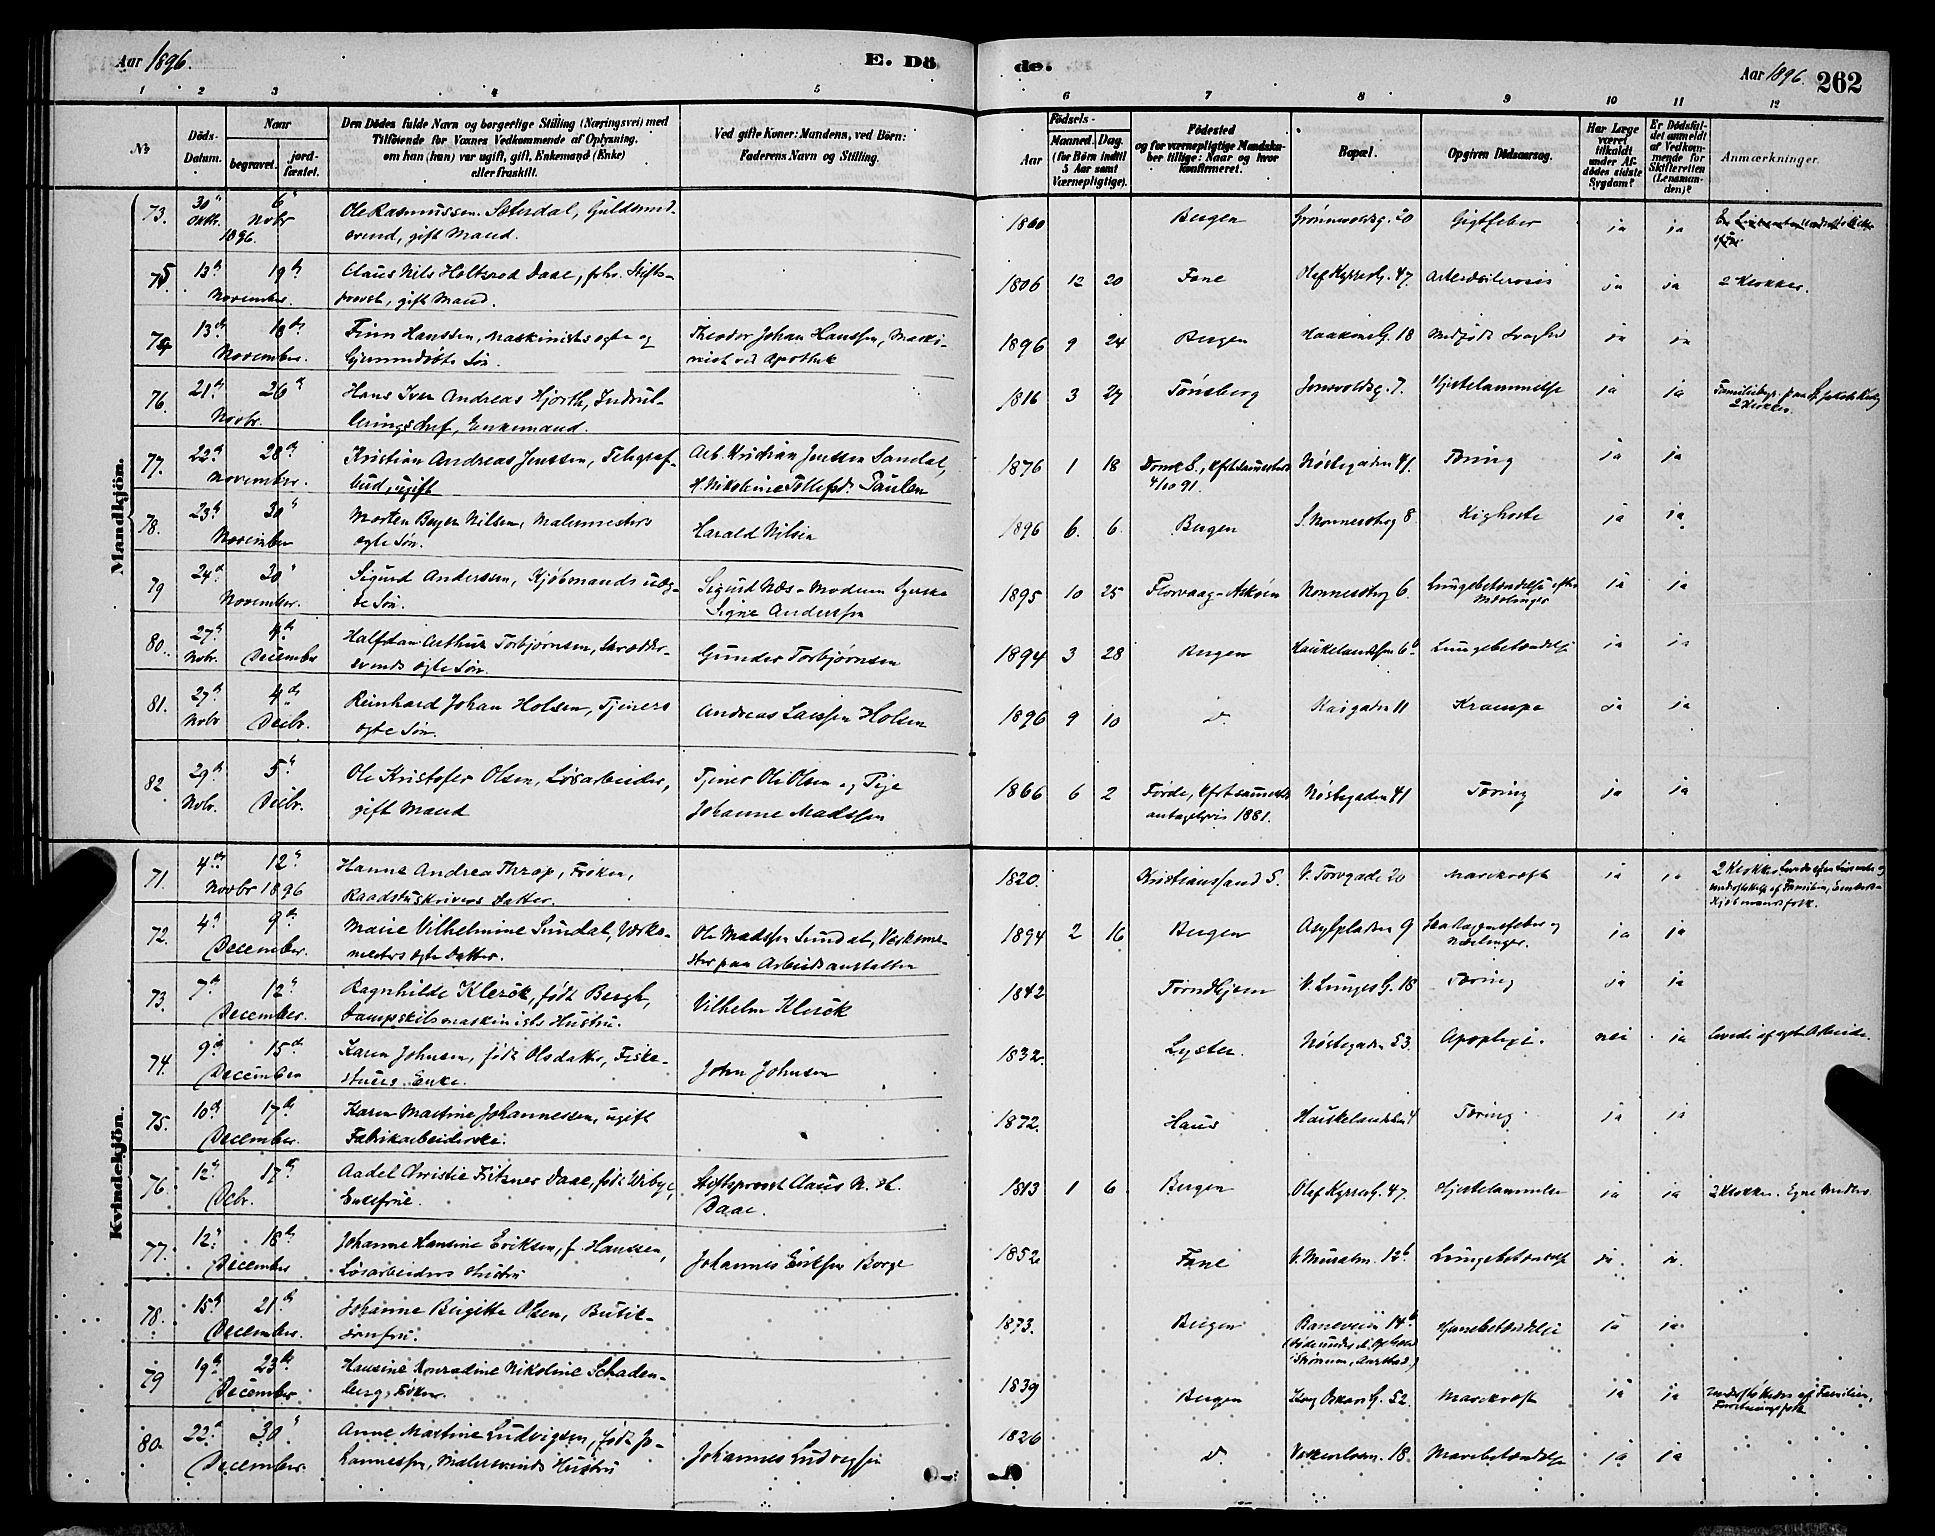 Aar 1896.
E. Dö
de.
Aar 1896.
262
1 2 3 4 5 6 7 8 9 10 11 12
No
Döds-Datum.
Naar
begravet.
jord-fæstet.
Den Dödes fulde Navn og borgerlige Stilling (Næringsvei) med
Tilföiende for Voxnes Vedkommende af Oplysning,
om han (hun) var ugift, gift, Enkemand (Enke)
eller fraskilt.
Ved gifte Koner: Mandens, ved Börn:
Faderens Navn og Stilling.
Födsels-
Aar
Maaned. Dag.
(for Börn indtil
5 Aar samt
Værnepligtige).
Födested
og for værnepligtige Mandska-
ber tillige: Naar og hvor
konfirmeret.
Bopæl.
Opgiven Dödsaarsag.
Har Læge
været
tilkaldt
under Af-
dödes sidste
Sygdom?
Er Dödsfal-
det anmeldt
af Vedkom-
mende for
Skifteretten
(Lensman-
den)?
Anmærkninger.
Mandkjön.
73. 30 Oktbr. 6 Novbr 1896. Ole Rasmussen Sæterdal, Guldsmed-
svend, gift Mand. 1860 Bergen Grønnevoldsg. 20 Gigtfeber ja ja
75 13 19 November. Claus Nils Holtzred Daae, fhv. Stifts-
provst, gift Mand. 1806 12 20 Fane Olaf Kyrresg. 47. ja ja 2 Klokker.
74 13 18 November. Finn Hanssen, Maskinists ægte og
hjemmedøbte Søn. Theodor Johan Hanssen, Maski-
nist ved Apothek 1896 9 24 Bergen Haakons G. 18 Medfødt Svaghed ja ja
76. 21 26 Novbr. Hans Iver Andreas Hjorth, Indrul-
leringschef, Enkemand. 1816 3 27 Tønsberg Jonsvoldsg. 7. Hjertelammelse ja ja 2 Klokker.
77. 22 28 November. Kristian Andreas Jenssen, Telegraf-
bud, ugift Arb. Kristian Jenssen Sandal,
H. Nikoline Tollefsd. Paulen 1876 1 18 4/10 91. Nøstegaden 41. Tæring ja ja
78. 23 30 November Morten Beyer Nilsen, Malermesters
ægte Søn. Harald Nilsen 1896 6. 6. Bergen S. Nonnesthg 8. Kighoste ja ja
79 24 30 November. Sigurd Anderssen, Kjøbmands uæg-
te Søn. Sigurd Næs - Moderen Syerske
Signe Anderssen 1895 10 25 Florvaag - Askøen Nonnesthg 6. Lungebetændelse efter
Mæslinger ja ja
80. 27 Nobr. 4 December Halfdan Arthur Torbjørnsen, Skrædder-
svends ægte Søn. Gunder Torbjørnsen 1894 3 28 Bergen Haukelandsvn 6b Lungebetændelse ja ja
81. 27 Nobr 4 Decbr. Reinhard Johan Holsen, Tjeners
ægte Søn. Andreas Larssen Holsen 1896 9 10 d. Kaigaden 11 Krampe ja ja
82. 29 Nobr. 5 Decbr. Ole Kristofer Olsen, Løsarbeider,
gift Mand Tjener Ole Olsen og Pige
Johanne Madssen 1866 6 2 Førde,
antageligvis 1881. Nøstegaden 41 Tæring ja ja
Kvindekjön.
71. 4 12 Novbr 1896 Hanne Andrea Thrap, Frøken,
Raadstuskrivers Datter. 1820. Kristianssand S. V. Torvgade 20 Marekræft ja ja 2 Klokker.
72. 4 9 December. Marie Vilhelmine Sundal, Værk-
mesters ægte Datter. Ole Madssen Sundal, Værkme-
ster paa Arbeidsanstalten 1894 2 16 Bergen Asylpladsen 9 Skarlagensfeber og
Mæslinger. ja ja
73. 7 12 December. Ragnhilde Klerck, født Bergh,
Dampskibsmaskinists Hustru. Vilhelm Klerck 1842 Trondhjem V. Lunges G. 18 Tæring ja ja
74. 9 15 December Karen Johnsen, født Olsdatter, Fiske-
stuers Enke. John Johnsen 1832. Lyster. Nøstegaden 53. Apoplexi. nei ja
75. 10 17 December. Karen Martine Johannessen, ugift
Fabrikarbeiderske. 1872. Haus Haukelandsvn 4 Tæring ja ja
76. 12 17 Decbr. Aadel Christie Fritzner Daae, født Wibye,
Enkefrue. Stiftsprovst Claus N. H.
Daae. 1813 1 6 Bergen Olaf Kyrresg. 47. Hjertelammelse ja ja 2 Klokker.
77. 12 18 December Johanne Hansine Eriksen, f. Hanssen,
Løsarbeiders Hustru Johannes Eriksen Borge 1852 Fane V. Muralm. 12b Lungebetændelse ja ja
78. 15 21 December. Johanne Birgitte Olsen, Butik-
jomfru. 1873. Bergen Baneveien 14b Hjernebetændelse ja ja
79 19 23 December. Hansine Konradine Nikoline Schaden-
berg, Frøken. 1839 Bergen Kong Oskars G. 52. Marekræft ja ja
80. 22 30 December. Anne Martine Ludvigsen, født Jo-
hannessen, Malersvends Hustru Johannes Ludvigsen 1826 d. 18. Mavebetændelse ja ja